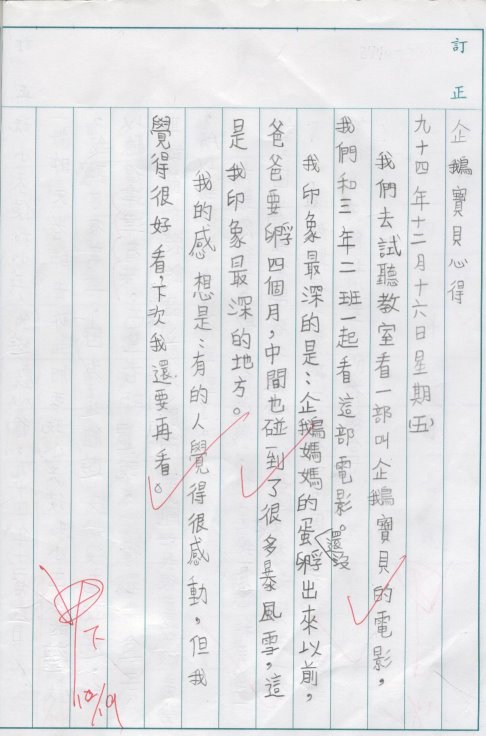 訂正
企鵝寶貝心得
九十四年十二月十六日星期(五)
我們去試聽教室看一部叫企鵝寶貝的電影,
我們和三年二班一起看這部電影。
我印象最深的是:企鵝媽媽的蛋還沒孵出來以前,
爸爸要孵四個月,中間也碰到了很多暴風雪,這
是我印象最深的地方。
我的感想是:有的人覺得很感動,但我
覺得很好看,下次我還要再看。
下